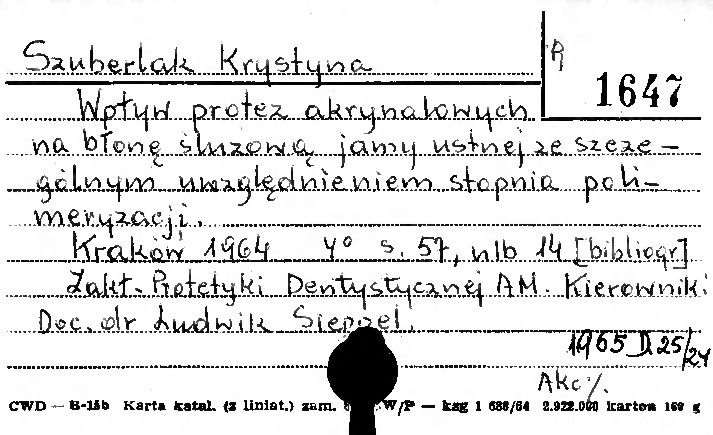 Szuberlak Krystyna
R
1647
Wpływ protez akrynalowych
na błonę śluzową jamy ustnej ze szcze-
gólnym uwzględnieniem stopnia poli-
meryzacji.
Kraków 1964 4° s. 57, nlb 14 [bibliogr]
Zakł. Protetyki Dentystycznej AM. Kierownik:
Doc. dr Ludwik Sieppel.
1965 D. 25/24
Akc/.
CWD — B-15b Karta katal. (z liniat.) zam. W/P — kzg 1 688/64 2.922.000 karton 160 g